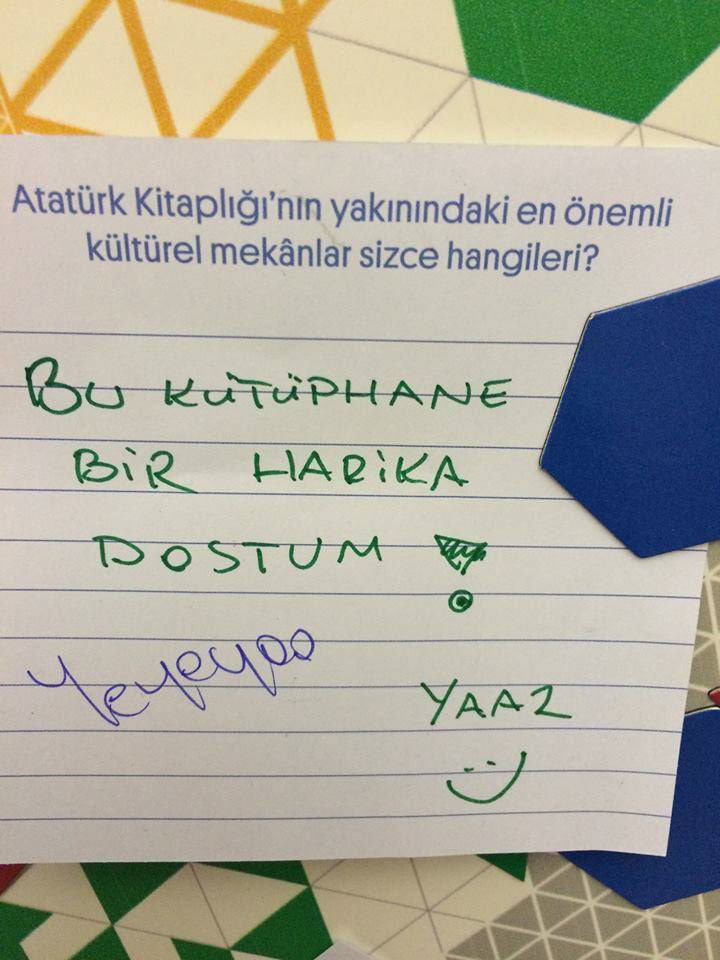 Atatürk Kitaplığı'nın yakınındaki en önemli
kültürel mekânlar sizce hangileri?
BU KÜTÜPHANE
BİR HARİKA
DOSTUM !
Yeyeyoo
YAAZ
:)